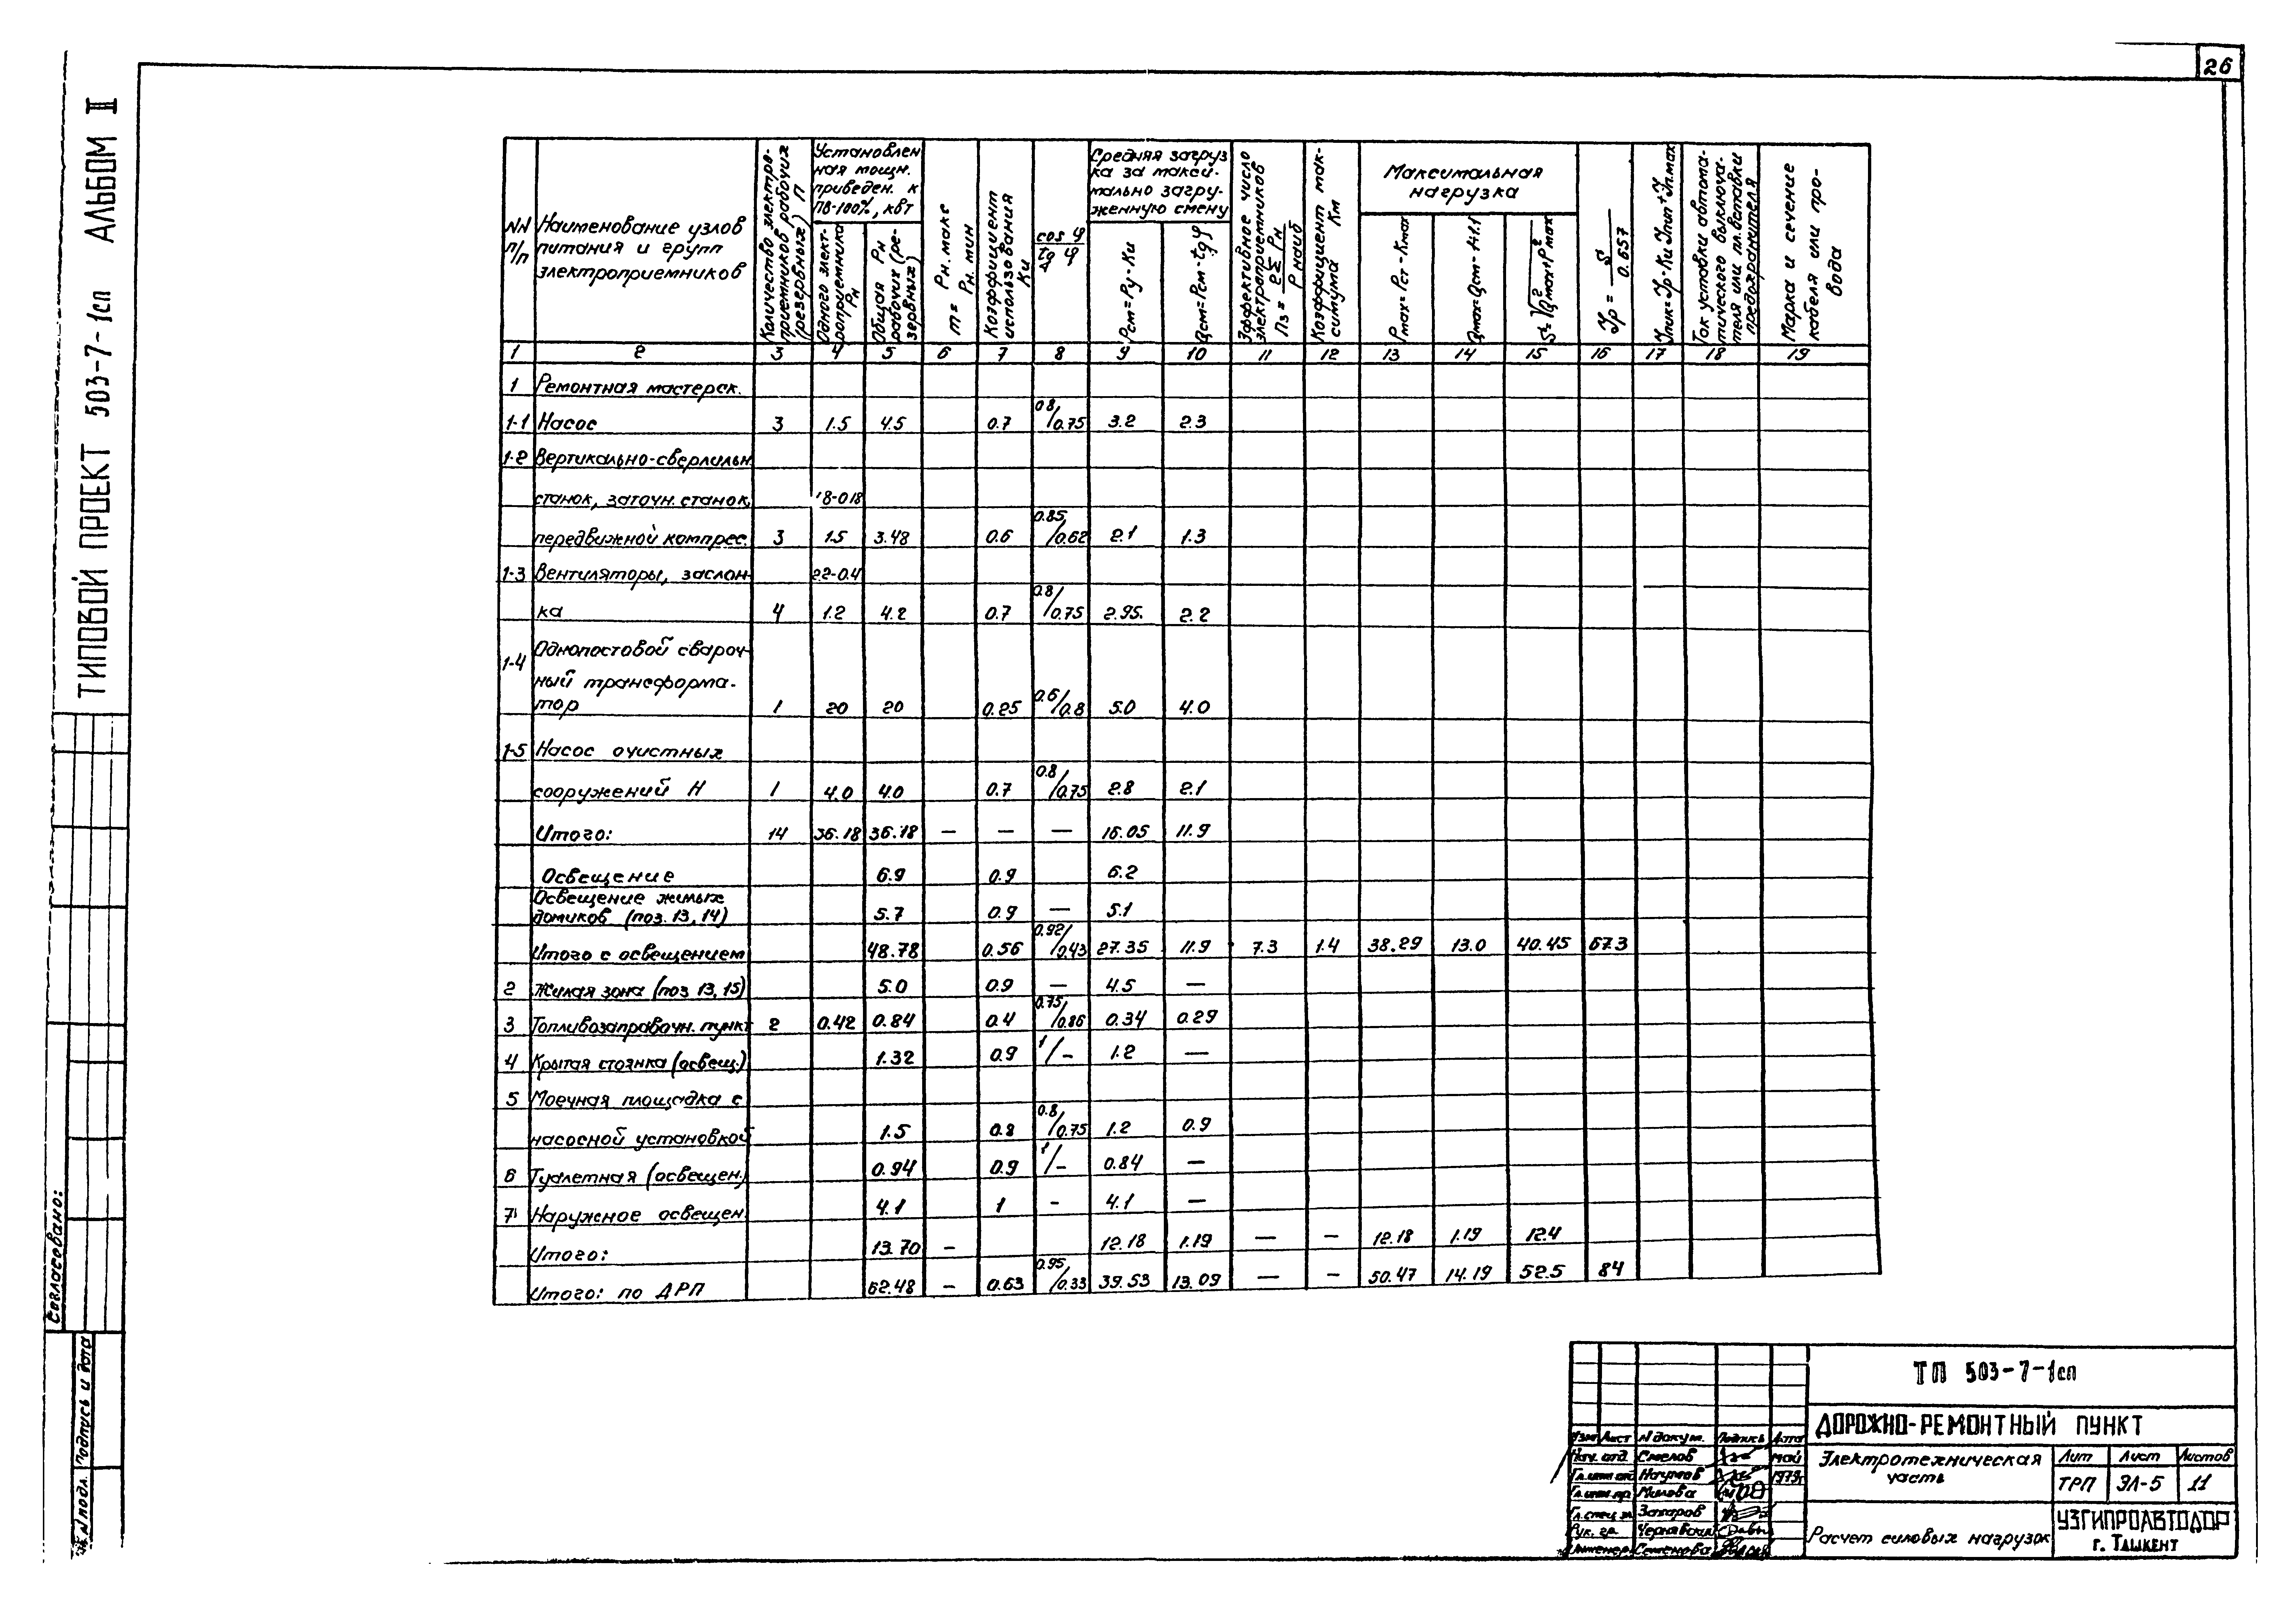 26
ТИПОВОЙ ПРОЕКТ 503-7-1сп АЛЬБОМ II
NN п/п
Наименование узлов питания и групп электроприемников
Количество электроприемников рабочих (резервных) П
Установленная мощн. приведен. к ПВ-100%, квт
Одного электроприемника Рн
Общая Рн рабочих (резервных)
m = Рн.макс / Рн.мин
Коэффициент использования Ки
cos φ / tg φ
Средняя загрузка за максимально загруженную смену
Рсм=Ру-Ки
Qсм=Рсм-tgφ
Эффективное число электроприемников Пэ = 2Σ Рн / Рнаиб
Коэффициент максимума Км
Максимальная нагрузка
Рmax=Рст-Кmax
Qmax=Qсм-1.1
S=√Q²max+P²max
Jр = S / 0.657
Ток уставки автоматического выключателя или пл.вставки предохранителя
Марка и сечение кабеля или провода
1 2 3 4 5 6 7 8 9 10 11 12 13 14 15 16 17 18 19
1 Ремонтная мастерск.
1-1 Насос 3 1.5 4.5 0.7 0.8/0.75 3.2 2.3
1-2 Вертикально-сверлильн
станок, заточн. станок, 18-018
передвижной компрес. 3 1.5 3.48 0.6 0.85/0.62 2.1 1.3
1-3 Вентиляторы, заслон- 22-0.4
ка 4 1.2 4.2 0.7 0.8/0.75 2.95. 2.2
1-4 Однопостовой свароч-
ный трансформа-
тор 1 20 20 0.25 0.6/0.8 5.0 4.0
1-5 Насос очистных
сооружений Н 1 4.0 4.0 0.7 0.8/0.75 2.8 2.1
Итого: 14 36.18 36.18 — — — 16.05 11.9
Освещение 6.9 0.9 6.2
Освещение жилых
домиков (поз. 13, 14) 5.7 0.9 — 5.1
Итого с освещением 48.78 0.56 0.92/0.43 27.35 11.9 7.3 1.4 38.29 13.0 40.45 67.3
2 Жилая зона (поз 13, 15) 5.0 0.9 — 4.5 —
3 Топливозаправочн. пункт 2 0.42 0.84 0.4 0.75/0.86 0.34 0.29
4 Крытая стоянка (освещ.) 1.32 0.9 1/- 1.2 —
5 Моечная площадка с
насосной установкой 1.5 0.8 0.8/0.75 1.2 0.9
6 Туалетная (освещен.) 0.94 0.9 1/- 0.84 —
7 Наружное освещен. 4.1 1 - 4.1 —
Итого: 13.70 — 12.18 1.19 — — 12.18 1.19 12.4
Итого: по ДРП 62.48 — 0.63 0.95/0.33 39.53 13.09 — — 50.47 14.19 52.5 84
Согласовано:
Подпись и дата
N подл.
ТП 503-7-1сп
ДОРОЖНО-РЕМОНТНЫЙ ПУНКТ
Изм Лист N докум. Подпись Дата
Нач. отд. Смелов май
Гл.инж отд Наумов 1979г
Гл.инж.пр. Милова
Гл.спец эл Захаров
Рук. гр. Чернявский
Инженер Семенова
Электротехническая часть
Лит Лист Листов
ТРП ЭЛ-5 11
Расчет силовых нагрузок
УЗГИПРОАВТОДОР
г. Ташкент